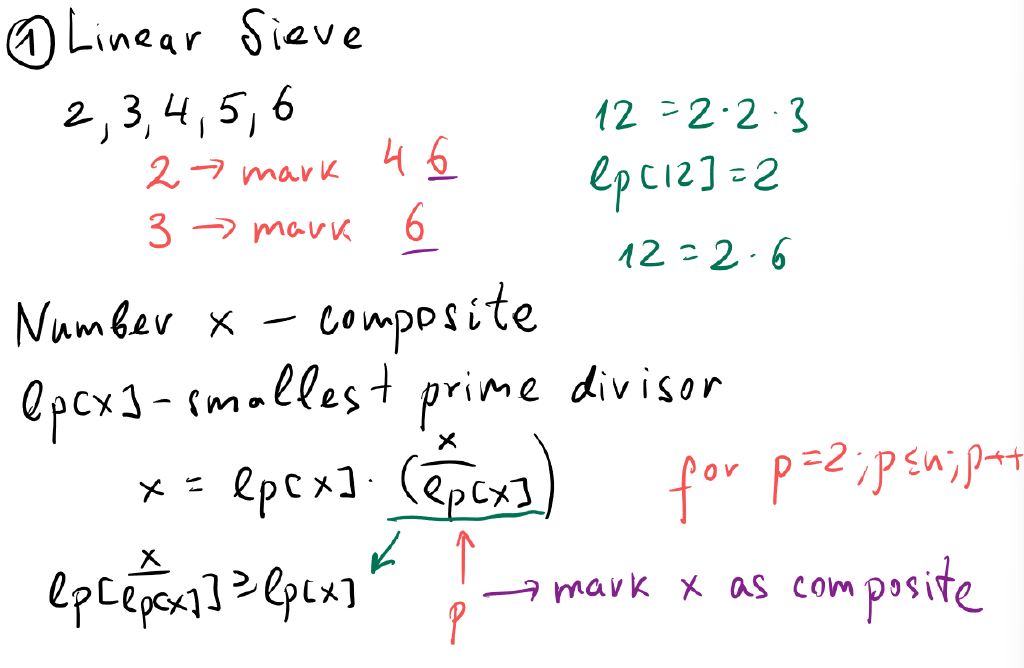 ① Linear Sieve
2, 3, 4, 5, 6
2 → mark 4 6
3 → mark 6
12 = 2·2·3
lp[12] = 2
12 = 2·6
Number x – composite
lp[x] – smallest prime divisor
x = lp[x] · (x / lp[x])
for p=2; p≤n; p++
lp[x / lp[x]] ≥ lp[x]
p → mark x as composite